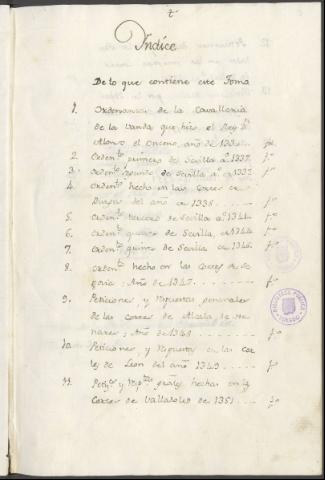 t
Indice
De lo que contiene este Tomo
1. Ordenanzas de la Cavalleria
de la Vanda que hizo el Rey Dn
Alonso el Onceno, año de 133
2. Ordento primero de Sevilla ao 1337. fo
3. Ordento segundo de Sevilla ao 1337 fo
4. Ordento hecho en las Cortes de
Burgos del año de 1338 . . . fo
5. Ordento tercero de Sevilla ao 1341. fo
6. Ordento quarto de Sevilla de 1344 fo
7. Ordento quinto de Sevilla de 1346. fo
8. Ordento hecho en las Cortes de Se-
govia; Año de 1347 . . . . . . fo
9. Peticiones, y Repuestas generales
de las Cortes de Alcalá de He-
nares; Año de 1348 . . . . . fo
10. Peticiones, y Repuestas en las Cor-
tes de Leon del año 1349 . . . . fo
11. Petiçs y Reptas grâles hechas en las
Cortes de Valladolid de 1351. . . fo
BIBLIOTECA PUBLICA
TOLEDO